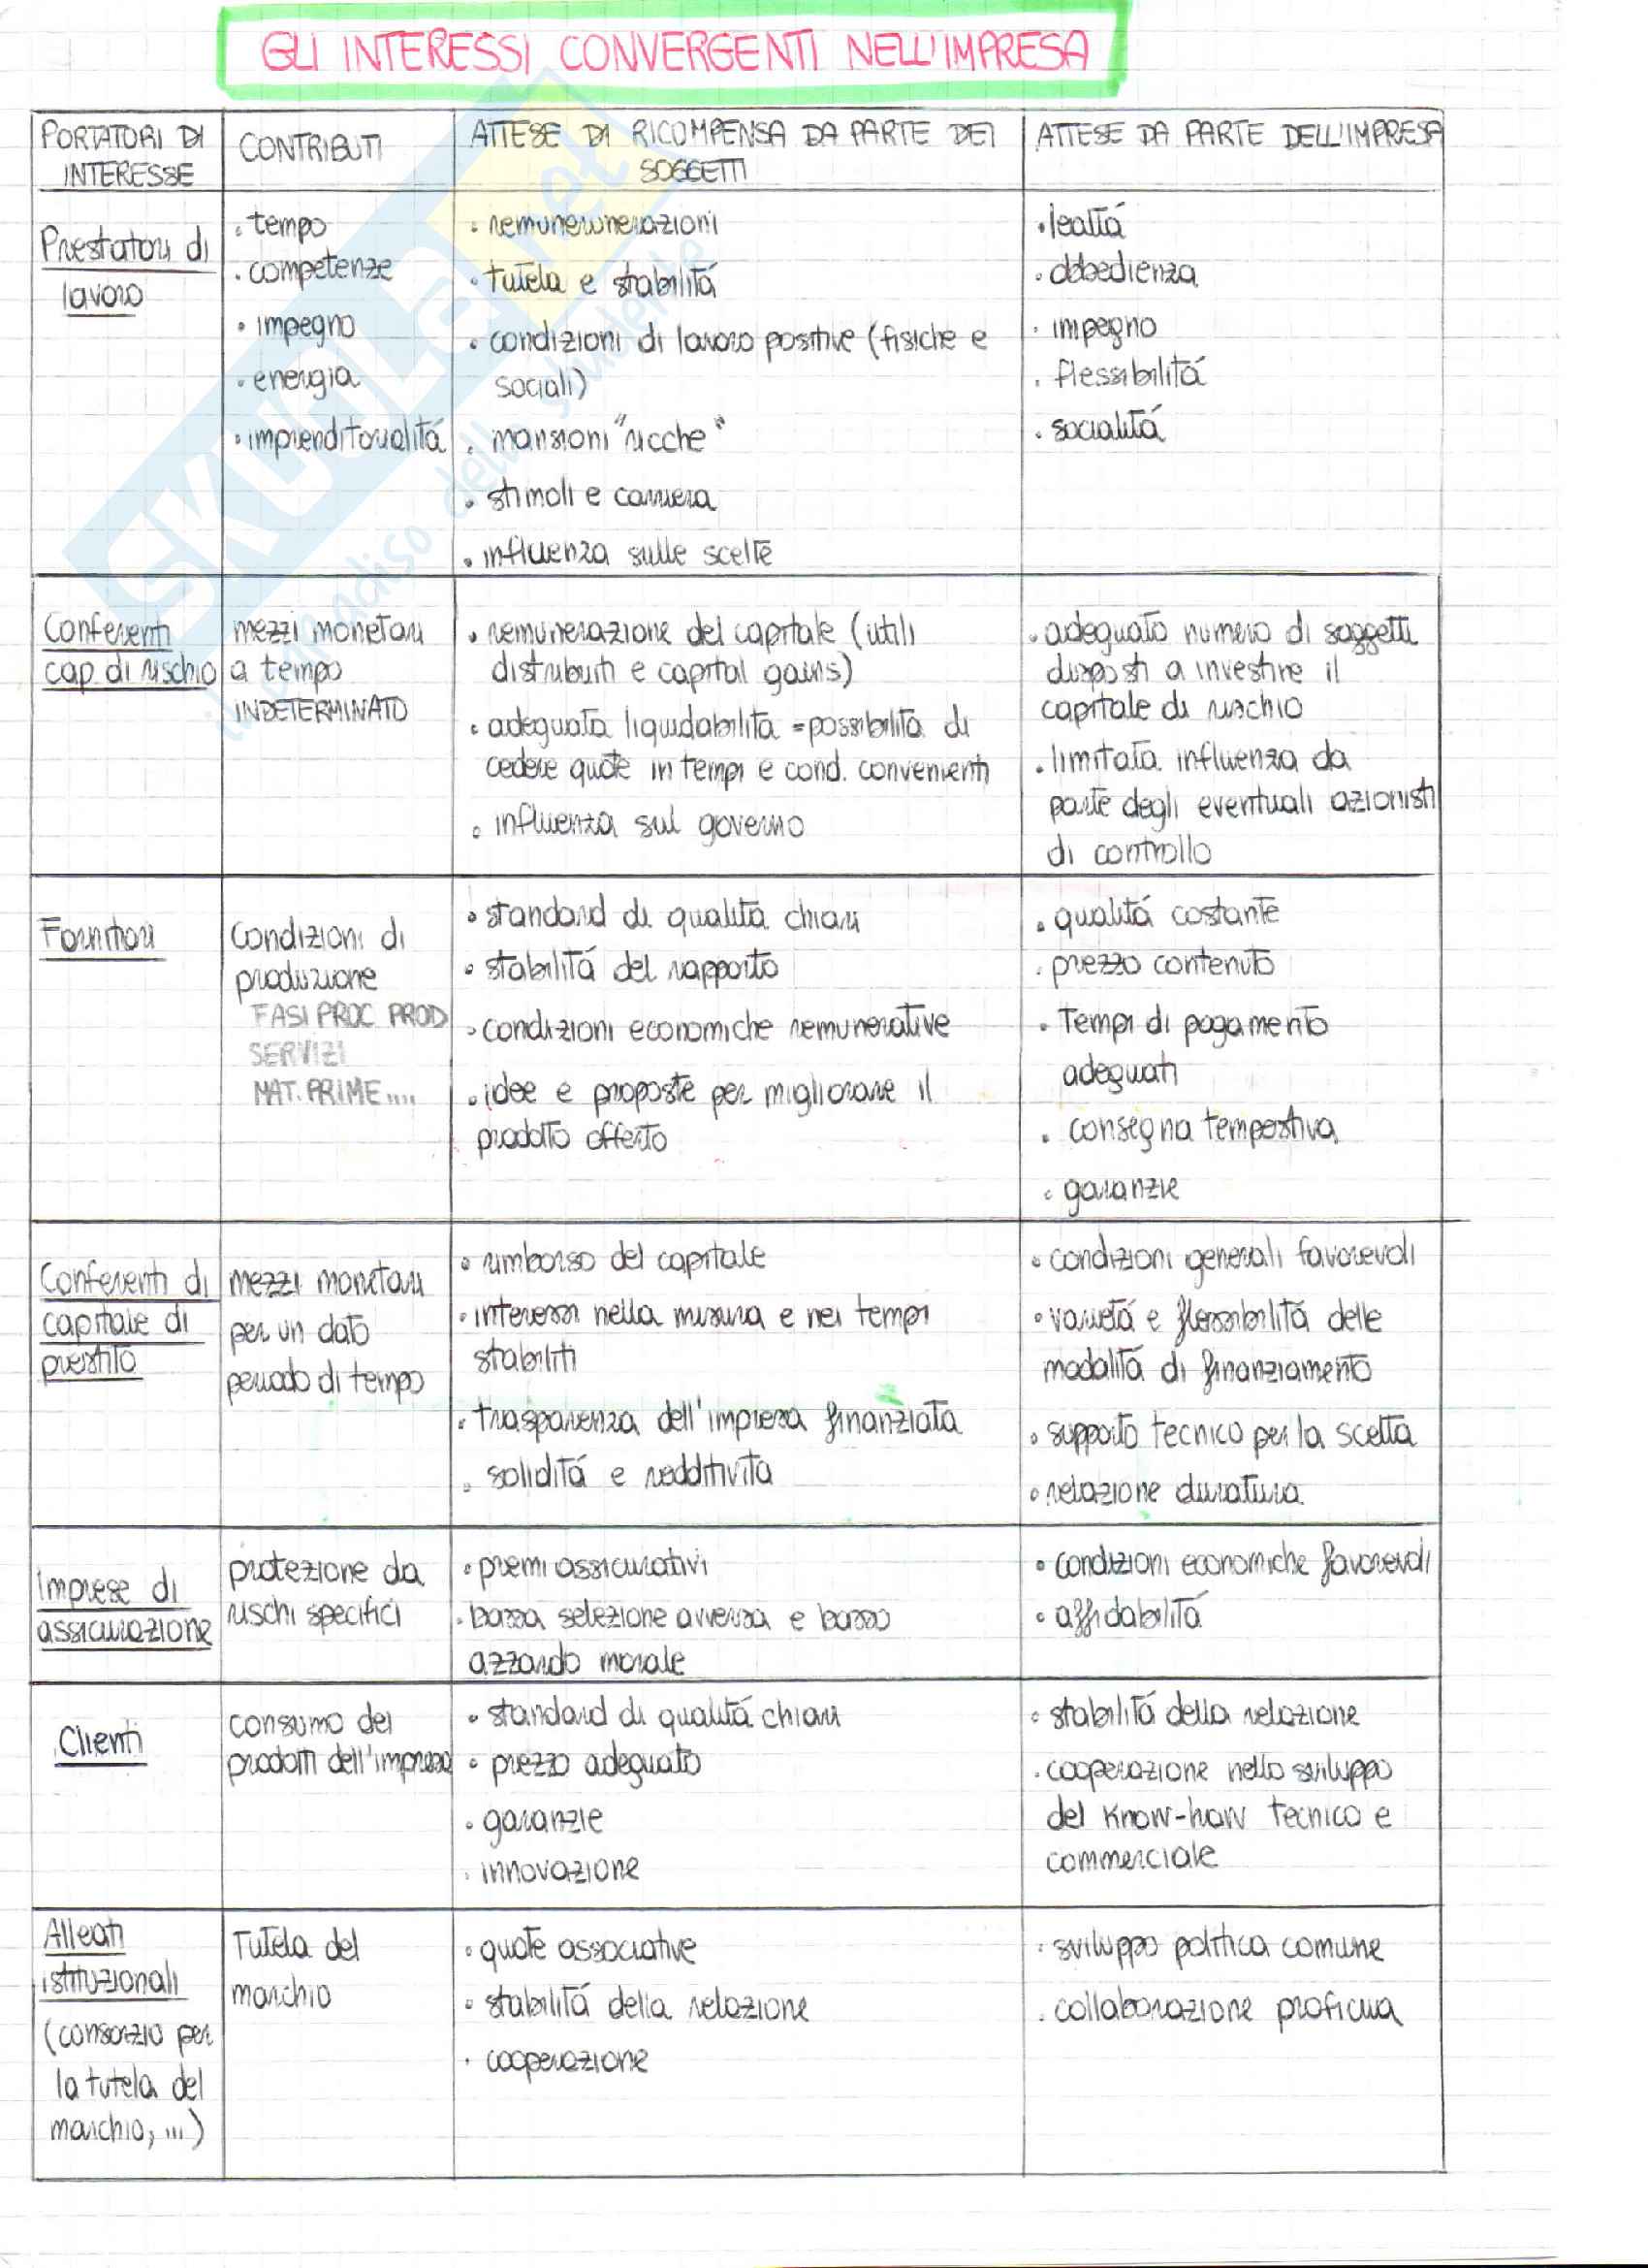 GLI INTERESSI CONVERGENTI NELL'IMPRESA
PORTATORI DI
INTERESSE
CONTRIBUTI
ATTESE DI RICOMPENSA DA PARTE DEI
SOGGETTI
ATTESE DA PARTE DELL'IMPRESA
Prestatori di
lavoro
• tempo
• competenze
• impegno
• energia
• imprenditorialitá
• remunerunerazioni
• tutela e stabilitá
• condizioni di lavoro positive (fisiche e
sociali)
• mansioni "ricche"
• stimoli e carriera
• influenza sulle scelte
• lealtá
• obbedienza
• impegno
• flessibilitá
• socialitá
Conferenti
cap di rischio
mezzi monetari
a tempo
INDETERMINATO
• remunerazione del capitale (utili
distribuiti e capital gains)
• adeguata liquidabilita = possibilita di
cedere quote in tempi e cond. convenienti
• influenza sul governo
• adeguato numero di soggetti
disposti a investire il
capitale di rischio
• limitata influenza da
parte degli eventuali azionisti
di controllo
Fornitori
Condizioni di
produzione
FASI PROC PROD
SERVIZI
MAT. PRIME....
• standard di qualitá chiari
• stabilitá del rapporto
• condizioni economiche remunerative
• idee e proposte per migliorare il
prodotto offerto
• qualitá costante
• prezzo contenuto
• Tempi di pagamento
adeguati
• consegna tempestiva
• garanzie
Conferenti di
capitale di
prestito
mezzi monetari
per un dato
periodo di tempo
• rimborso del capitale
• interessi nella misura e nei tempi
stabiliti
• trasparenza dell'impresa finanziata
• soliditá e redditivita
• condizioni generali favorevoli
• varietá e flessibilitá delle
modalitá di finanziamento
• supporto tecnico per la scelta
• relazione duratura
Imprese di
assicurazione
protezione da
rischi specifici
• premi assicurativi
• bassa selezione avversa e basso
azzardo morale
• condizioni economiche favorevoli
• affidabilitá
Clienti
consumo dei
prodotti dell'impresa
• standard di qualitá chiari
• prezzo adeguato
• garanzie
• innovazione
• stabilitá della relazione
• cooperazione nello sviluppo
del know-how tecnico e
commerciale
Alleati
istituzionali
(consorzio per
la tutela del
marchio, ...)
Tutela del
marchio
• quote associative
• stabilitá della relazione
• cooperazione
• sviluppo politica comune
• collaborazione proficua
SKUOLA.net
il paradiso dello studente